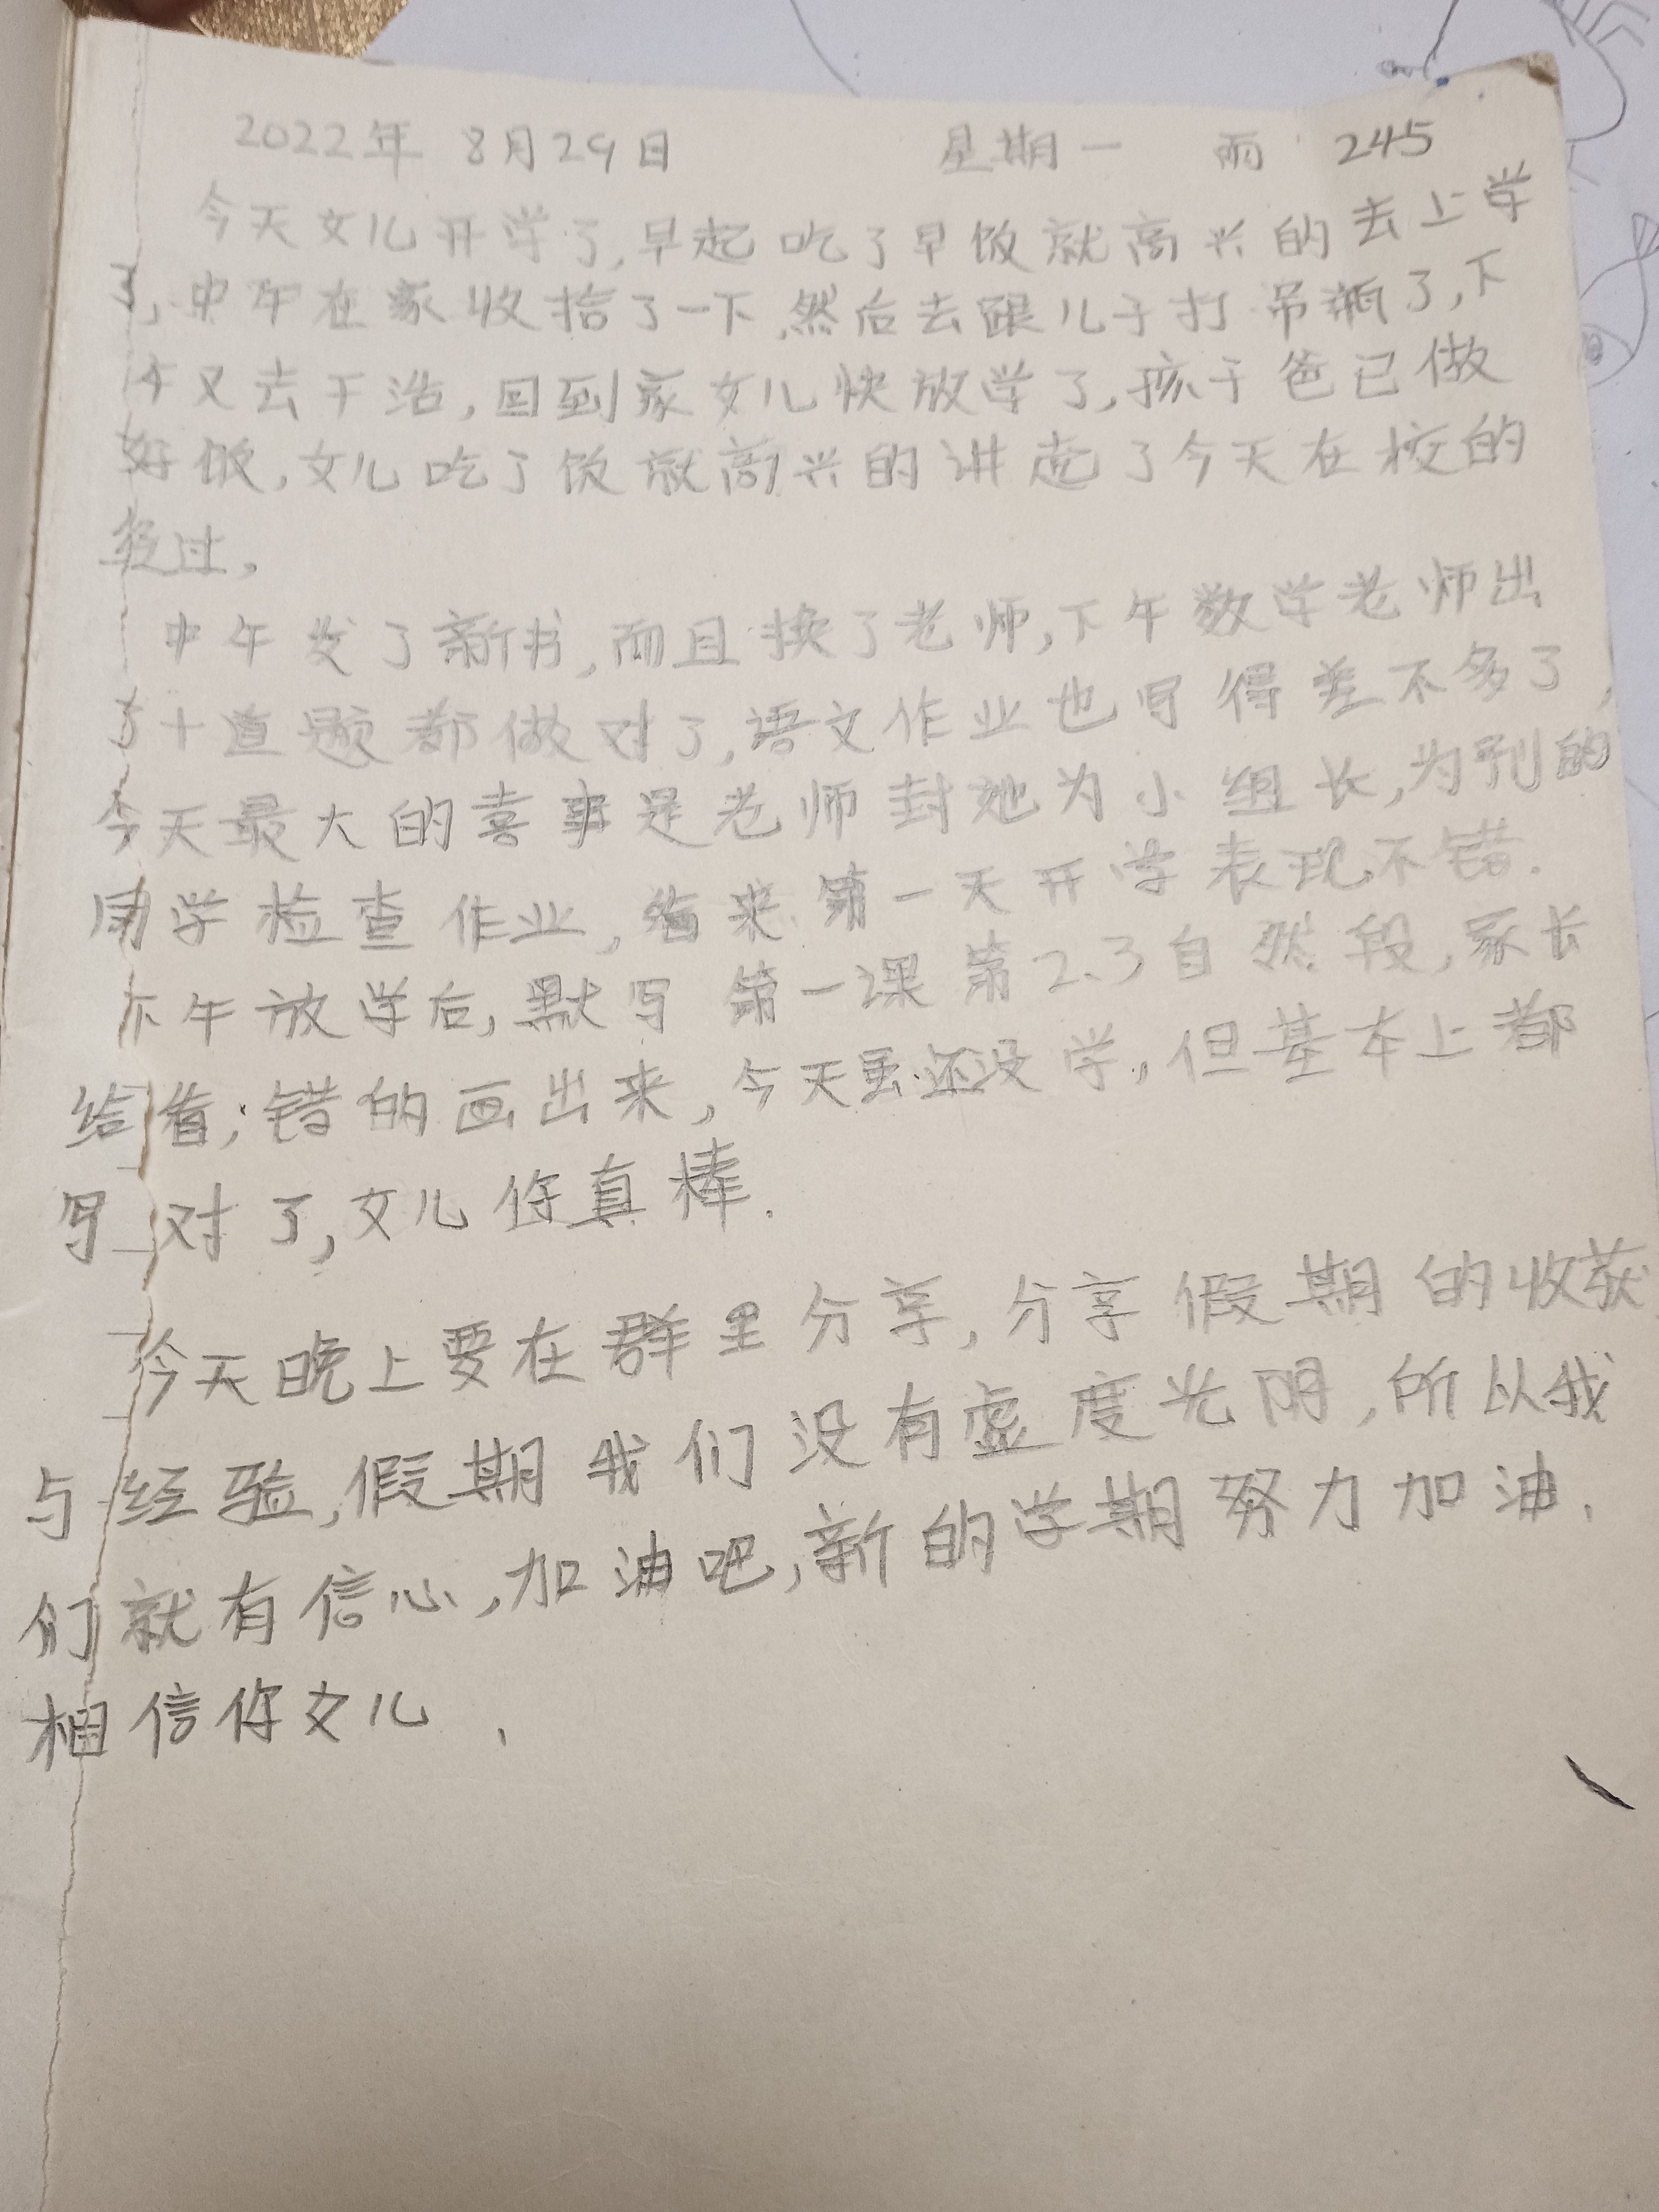 2022年 8月29日 星期一 雨 245
今天女儿开学了,早起吃了早饭就高兴的去上学
了,中午在家收拾了一下,然后去跟儿子打吊瓶了,下
午又去干活,回到家女儿快放学了,孩子爸已做
好饭,女儿吃了饭就高兴的讲起了今天在校的
经过,
中午发了新书,而且换了老师,下午数学老师出
了十道题都做对了,语文作业也写得差不多了,
今天最大的喜事是老师封她为小组长,为列的
同学检查作业,看来第一天开学表现不错.
下午放学后,默写第一课第2、3自然段,家长
给看,错的画出来,今天虽还没学,但基本上都
写对了,女儿你真棒.
今天晚上要在群里分享,分享假期的收获
与经验,假期我们没有虚度光阴,所以我
们就有信心,加油吧,新的学期努力加油、
相信你女儿、